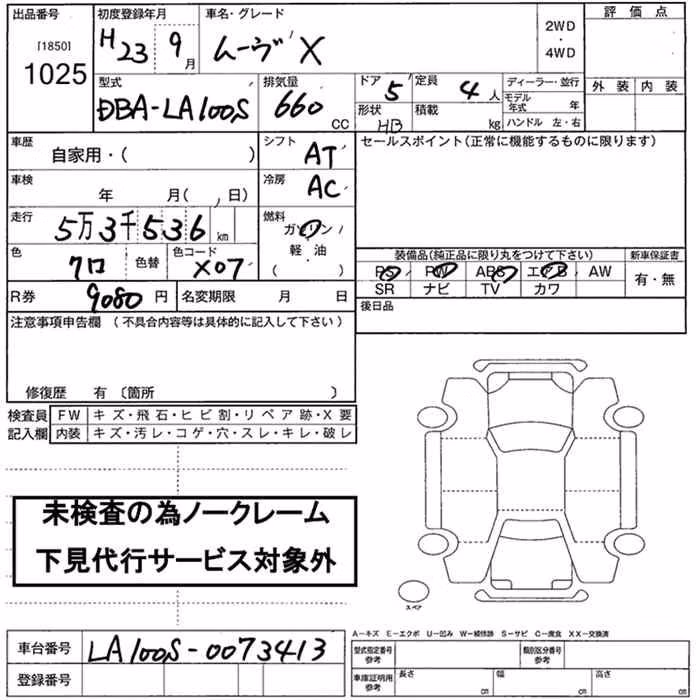 出品番号
[1850]
1025
初度登録年月
H23 9月
車名・グレード
ムーヴ X
2WD
・
4WD
評価点
外装 内装
型式
DBA-LA100S
排気量
660 CC
ドア 5
定員 4人
形状 HB
積載 kg
ディーラー・並行
モデル年式 年
ハンドル 左・右
車歴
自家用・( )
シフト AT
セールスポイント(正常に機能するものに限ります)
車検
年 月( , 日)
冷房 AC
走行
5万3千536km
燃料
ガソリン
軽・油
( )
色
クロ
色替
色コード
X07
装備品(純正品に限り丸をつけて下さい)
新車保証書
PS PW ABS エアB AW
SR ナビ TV カワ
有・無
R券 9080円
名変期限 月 日
後日品
注意事項申告欄 (不具合内容等は具体的に記入して下さい)
修復歴 有 〔箇所 〕
検査員記入欄
FW キズ・飛石・ヒビ割・リペア跡・X要
内装 キズ・汚レ・コゲ・穴・スレ・キレ・破レ
未検査の為ノークレーム
下見代行サービス対象外
スペア
A-キズ E-エクボ U-凹み W-補修跡 S-サビ C-腐食 XX-交換済
車台番号 LA100S-0073413
登録番号
型式指定番号 参考
類別区分番号 参考
車庫証明用 参考
長さ cm
幅 cm
高さ cm